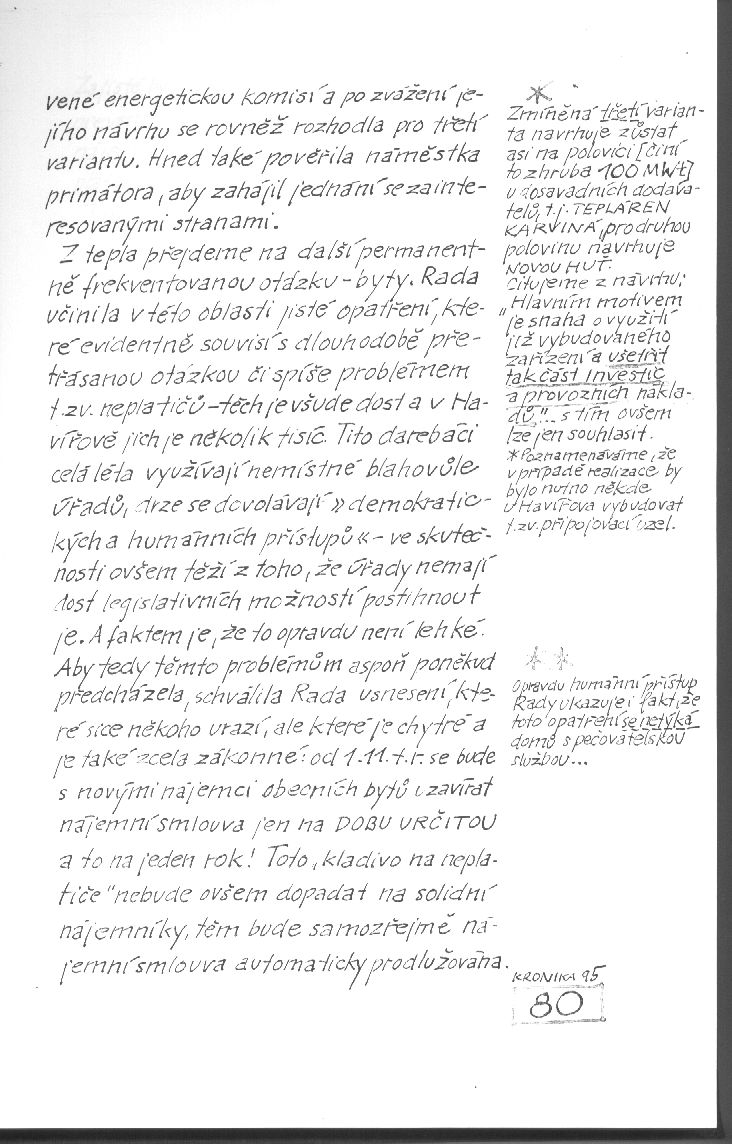 vené energetickou komisí a po zvážení je-
jího návrhu se rovněž rozhodla pro třetí
variantu. Hned také pověřila náměstka
primátora, aby zahájil jednání se zainte-
resovanými stranami.
Z tepla přejdeme na další permanent-
ně frekventovanou otázku - byty. Rada
učinila v této oblasti jisté opatření, kte-
ré evidentně souvisí s dlouhodobě pře-
třásanou otázkou či spíše problémem
t.zv. neplatičů - těch je všude dost a v Ha-
vířově jich je několik tisíc. Tito darebáci
celá léta využívají nemístné blahovůle
úřadů, drze se dovolávají » demokratic-
kých a humánních přístupů « - ve skuteč-
nosti ovšem těží z toho, že úřady nemají
dost legislativních možností postihnout
je. A faktem je, že to opravdu není lehké.
Aby tedy těmto problémům aspoň poněkud
předcházela, schválila Rada usnesení, kte-
ré sice někoho urazí, ale které je chytré a
je také zcela zákonné: od 1.11.t.r. se bude
s novými nájemci obecních bytů uzavírat
nájemní smlouva jen na DOBU URČITOU
a to na jeden rok! Toto „kladivo na nepla-
tiče" nebude ovšem dopadat na solidní
nájemníky, těm bude samozřejmě ná-
jemní smlouva automaticky prodlužována.
*
Zmíněná třetí varian-
ta navrhuje zůstat
asi na polovici [činí
to zhruba 100 MWt]
u dosavadních dodava-
telů, t.j. TEPLÁREN
KARVINÁ, pro druhou
polovinu navrhuje
NOVOU HUŤ.
Citujeme z návrhu:
„Hlavním motivem
je snaha o využití
již vybudovaného
zařízení a ušetřit
tak část investic
a provozních nákla-
dů"... s tím ovšem
lze jen souhlasit.
*Poznamenáváme, že
v případě realizace by
bylo nutno někde
u Havířova vybudovat
t.zv. připojovací uzel.
**
Opravdu humánní přístup
Rady ukazuje i fakt, že
toto opatření se netýká
domů s pečovatelskou
službou...
KRONIKA 95
80